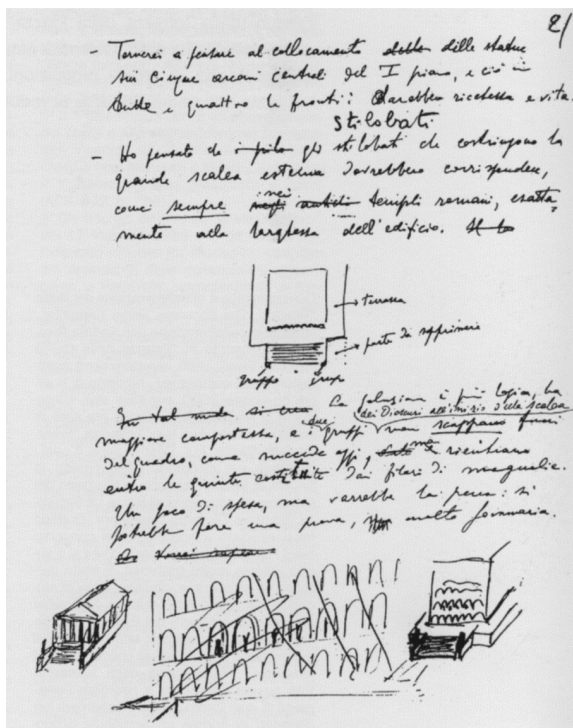 2/
- Tornerei a pensare al collocamento dello delle statue
sui cinque arconi centrali del I piano, e ciò in
tutte e quattro le fronti: darebbero ricchezza e vita.
stilobati
- Ho pensato che i gli stilobati che costringono la
grande scalea esterna dovrebbero corrispondere,
come sempre negli antichi nei templi romani, esatta-
mente alla larghezza dell'edificio.
terrazza
parte da sopprimere
gruppo
grup
In tal modo si crea La soluzione è più logica, ha
maggiore compostezza, e i due gruppi dei Dioscuri all'inizio della scalea non scappano fuori
del quadro, come succede oggi, ma rientrano
entro le quinte costituite dai filari di magnolie.
Un poco di spesa, ma varrebbe la pena: si
potrebbe fare una prova, molto sommaria.